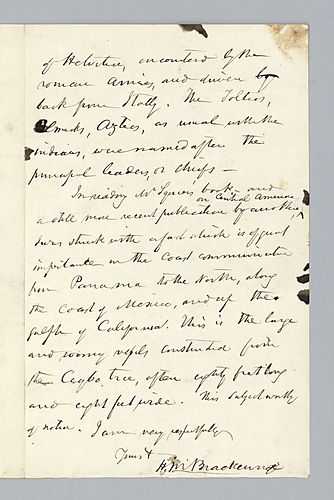 of Helvetia, encounterd by the
roman armies, and driven by
back from Italy. The Toltics,
Olmeds, Aztecs, as usual with the
indians, were named after the
principal leaders, or chiefs —
In reading Mr Squiers book — and
on Central America
a still more recent publication by another,
I was struck with a fact which is of great
importance in the coast communication
from Panama to the North, along
the Coast of Mexico, and up the
gulph of California. This is the large
and roomy vessels constructed from
the Ceyba tree, often eighty feet long
and eight feet wide. This subject worthy
of notice. I am, very respectfully
Yours &
H. M. Brackenridge